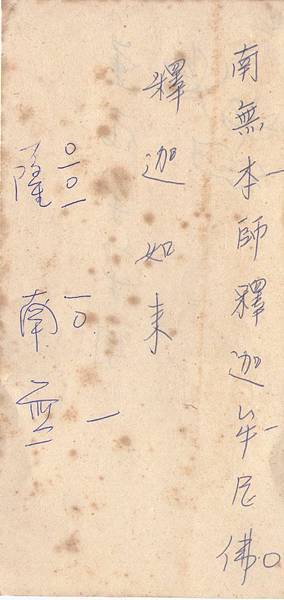 南無本一師釋迦牟一尼佛○
釋迦如来
○一○一 一○ 一
薩 南無